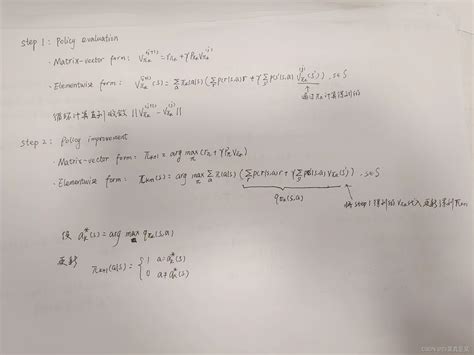 step 1: Policy evaluation
· Matrix-vector form: V_{πk}^{(j+1)} = r_{πk} + γP_{πk}V_{πk}^{(j)}
· Elementwise form: V_{πk}^{(j+1)}(s) = Σ_a π_k(a|s) (Σ_r p(r|s,a)r + γΣ_{s'} p(s'|s,a) V_{πk}^{(j)}(s')), s∈S
通过πk计算得到的
循环计算直到收敛 ||V_{πk}^{(j+1)} - V_{πk}^{(j)}||
step 2: Policy improvement
· Matrix-vector form: π_{k+1} = arg max_π (r_π + γP_πV_{πk})
· Elementwise form: π_{k+1}(s) = arg max_π Σ_a π(a|s) (Σ_r p(r|s,a)r + γΣ_{s'} p(s'|s,a) V_{πk}(s')), s∈S
q_{πk}(s,a)
将step1得到的V_{πk}代入更新得到π_{k+1}
a_k^*(s) = arg max_a q_{πk}(s,a)
更新
π_{k+1}(a|s) = { 1 a=a_k^*(s)
0 a≠a_k^*(s)